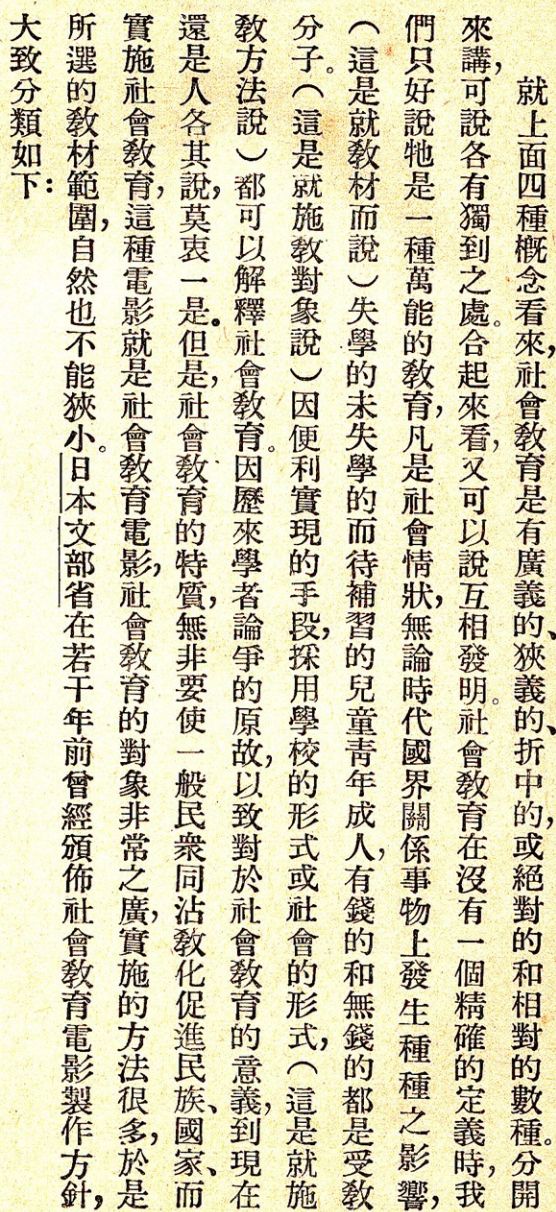 就上面四種概念看來，社會教育是有廣義的、狹義的、折中的，或絕對的和相對的數種。分開
來講，可說各有獨到之處。合起來看，又可以說互相發明。社會教育在沒有一個精確的定義時，我
們只好說牠是一種萬能的教育，凡是社會情狀，無論時代國界關係事物上發生種種之影響，
（這是就教材而說）失學的未失學的而待補習的兒童青年成人，有錢的和無錢的都是受教
分子。（這是就施教對象說）因便利實現的手段，採用學校的形式或社會的形式，（這是就施
教方法說）都可以解釋社會教育。因歷來學者論爭的原故，以致對於社會教育的意義，到現在
還是人各其說，莫衷一是。但是，社會教育的特質，無非要使一般民衆同沾教化促進民族、國家、而
實施社會教育，這種電影就是社會教育電影，社會教育的對象非常之廣，實施的方法很多，於是
所選的教材範圍，自然也不能狹小。日本文部省在若干年前曾經頒佈社會教育電影製作方針，
大致分類如下：